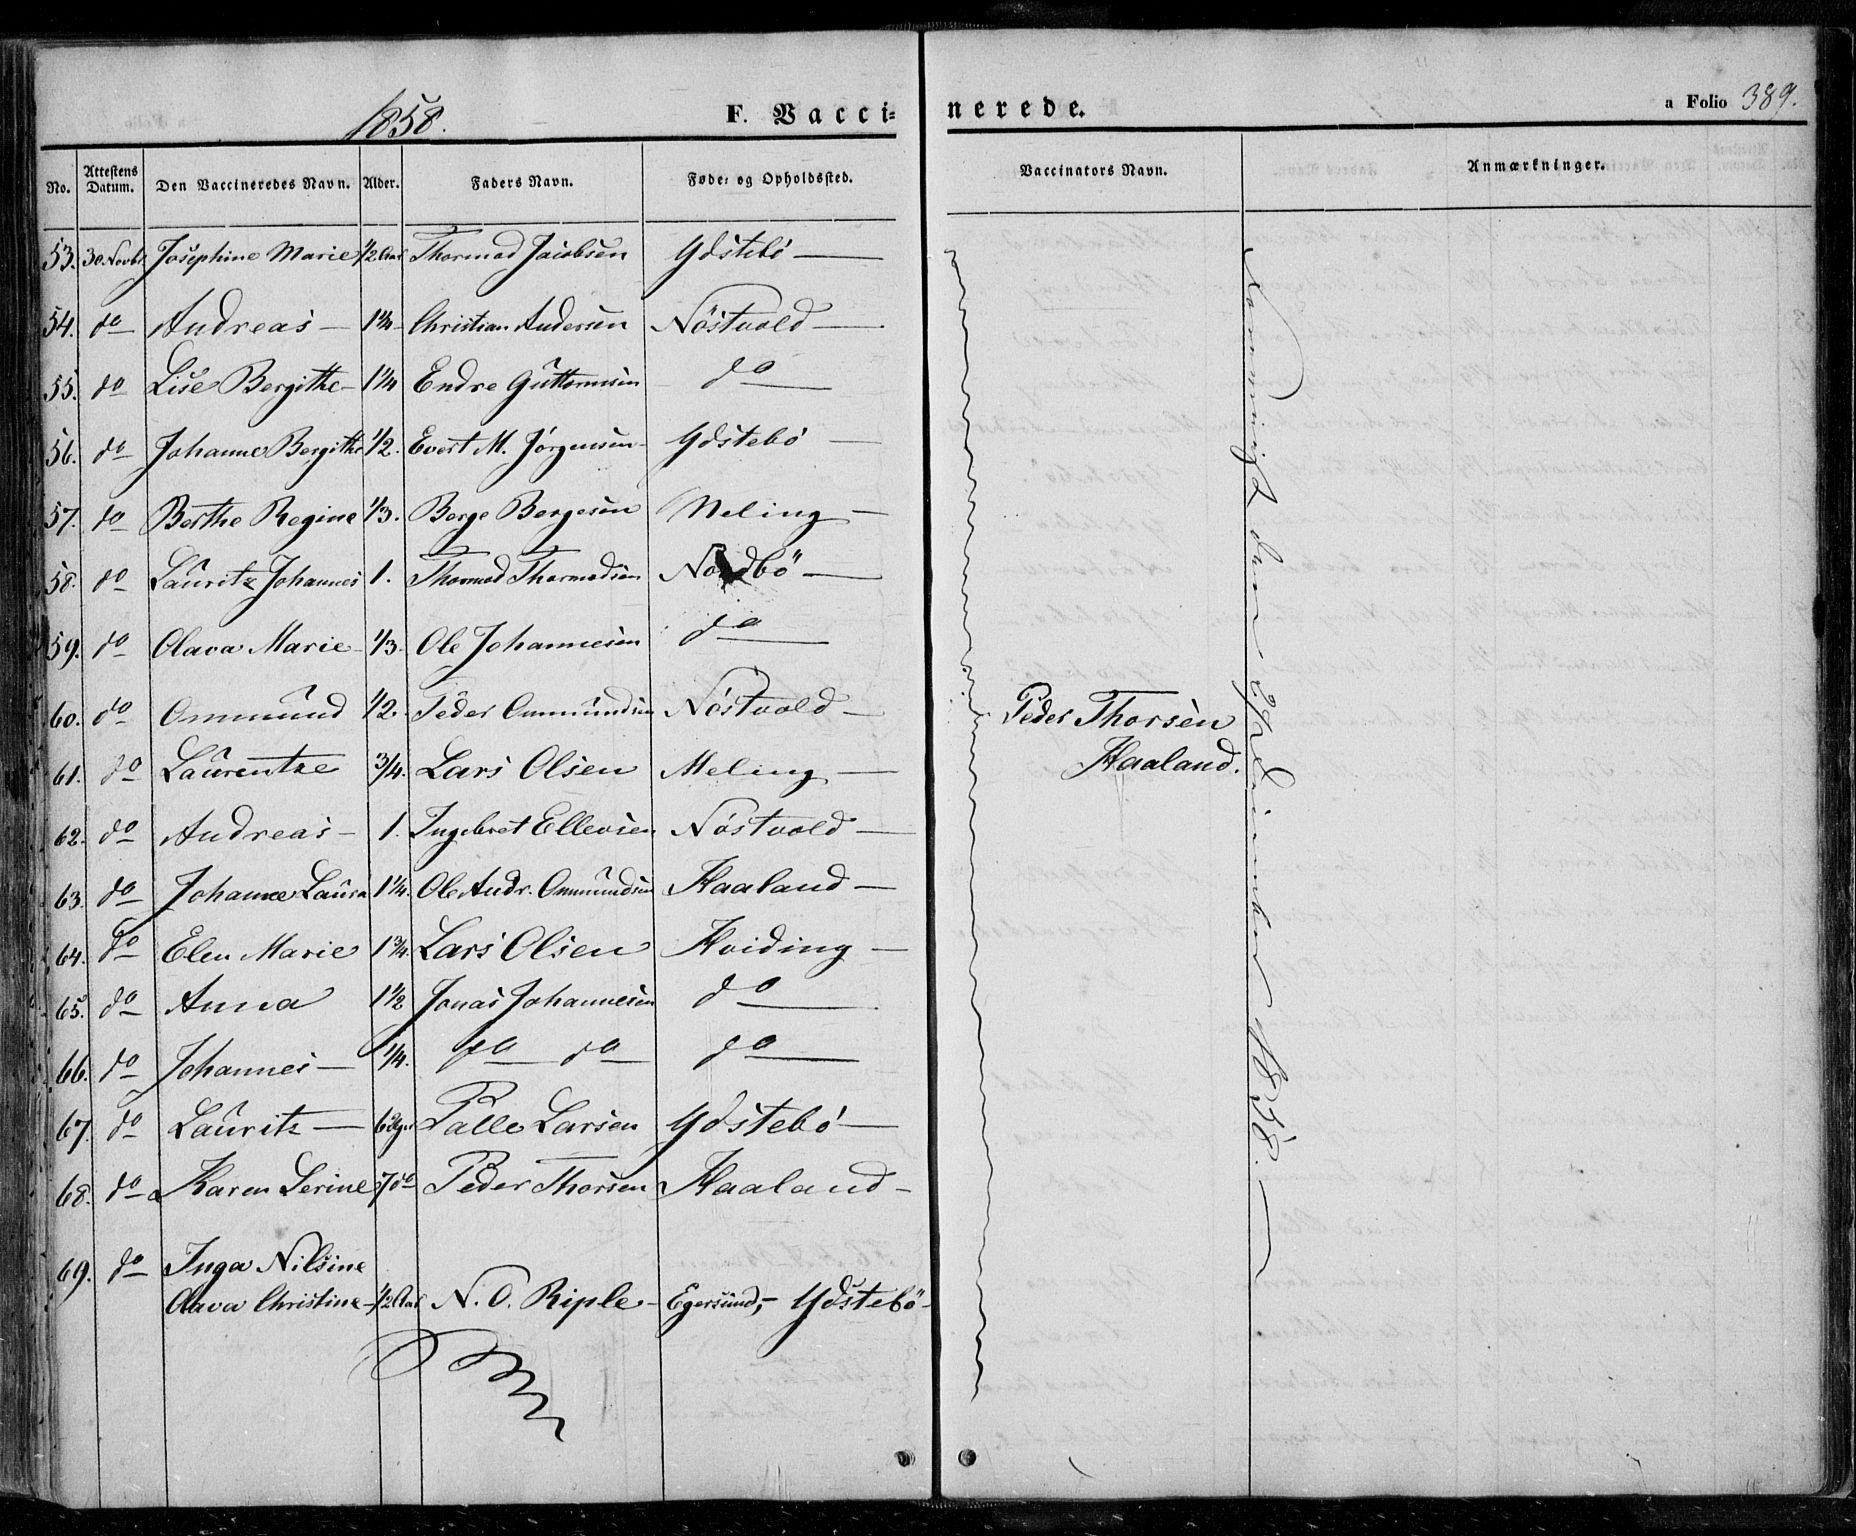 1858.
F. Vacci-
nerede.
a Folio 389.
No. Attestens Datum. Den Vaccineredes Navn. Alder. Faders Navn. Føde- og Opholdssted. Vaccinators Navn. Anmærkninger.
53. 30 Novbr Josephine Marie 1/2 Aar Thormod Jacobsen Ydstebö —
54. do Andreas — 1 3/4 Christian Andersen Nöstvold —
55. do Lise Bergithe — 1 1/4 Endre Guttormsen do —
56. do Johanne Bergithe 1/2. Evert M. Jørgensen Ydstebö —
57. do Berthe Regine 1/3. Berge Bergesen Meling —
58. do Lauritz Johannes 1. Thormod Thormodsen Nordbö —
59. do Olava Marie 1/3. Ole Johannesen do —
60. do Ommund 1/2. Peder Ommundsen Nöstvold —
61. do Laurentze 3/4. Lars Olsen Meling —
62. do Andreas — 1. Ingebret Ellevsen Nöstvold —
63. do Johanne Laura 1 1/4. Ole Andr. Ommundsen Haaland —
64. do Elen Marie 1 3/4. Lars Olsen Hviding —
65. do Anna 1 1/2 Jonas Johannesen do —
66. do Johannes — 1/4. do do do —
67. do Lauritz — 6 Palle Larsen Ydstebö —
68. do Karen Serine 7 do Peder Thorsen Haaland —
69. do Inga Nilsine
Olava Christine — 1/2 Aar N. O. Riple — Egersund, — Ydstebö —
Peder Thorsen
Haaland.
den December 1858. —